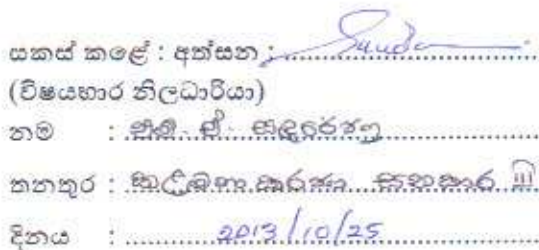 සකස් කළේ : අත්සන :
(විෂයභාර නිලධාරියා)
නම :
තනතුර : කළමනාකරණ සහකාර III
දිනය : 2013/10/25